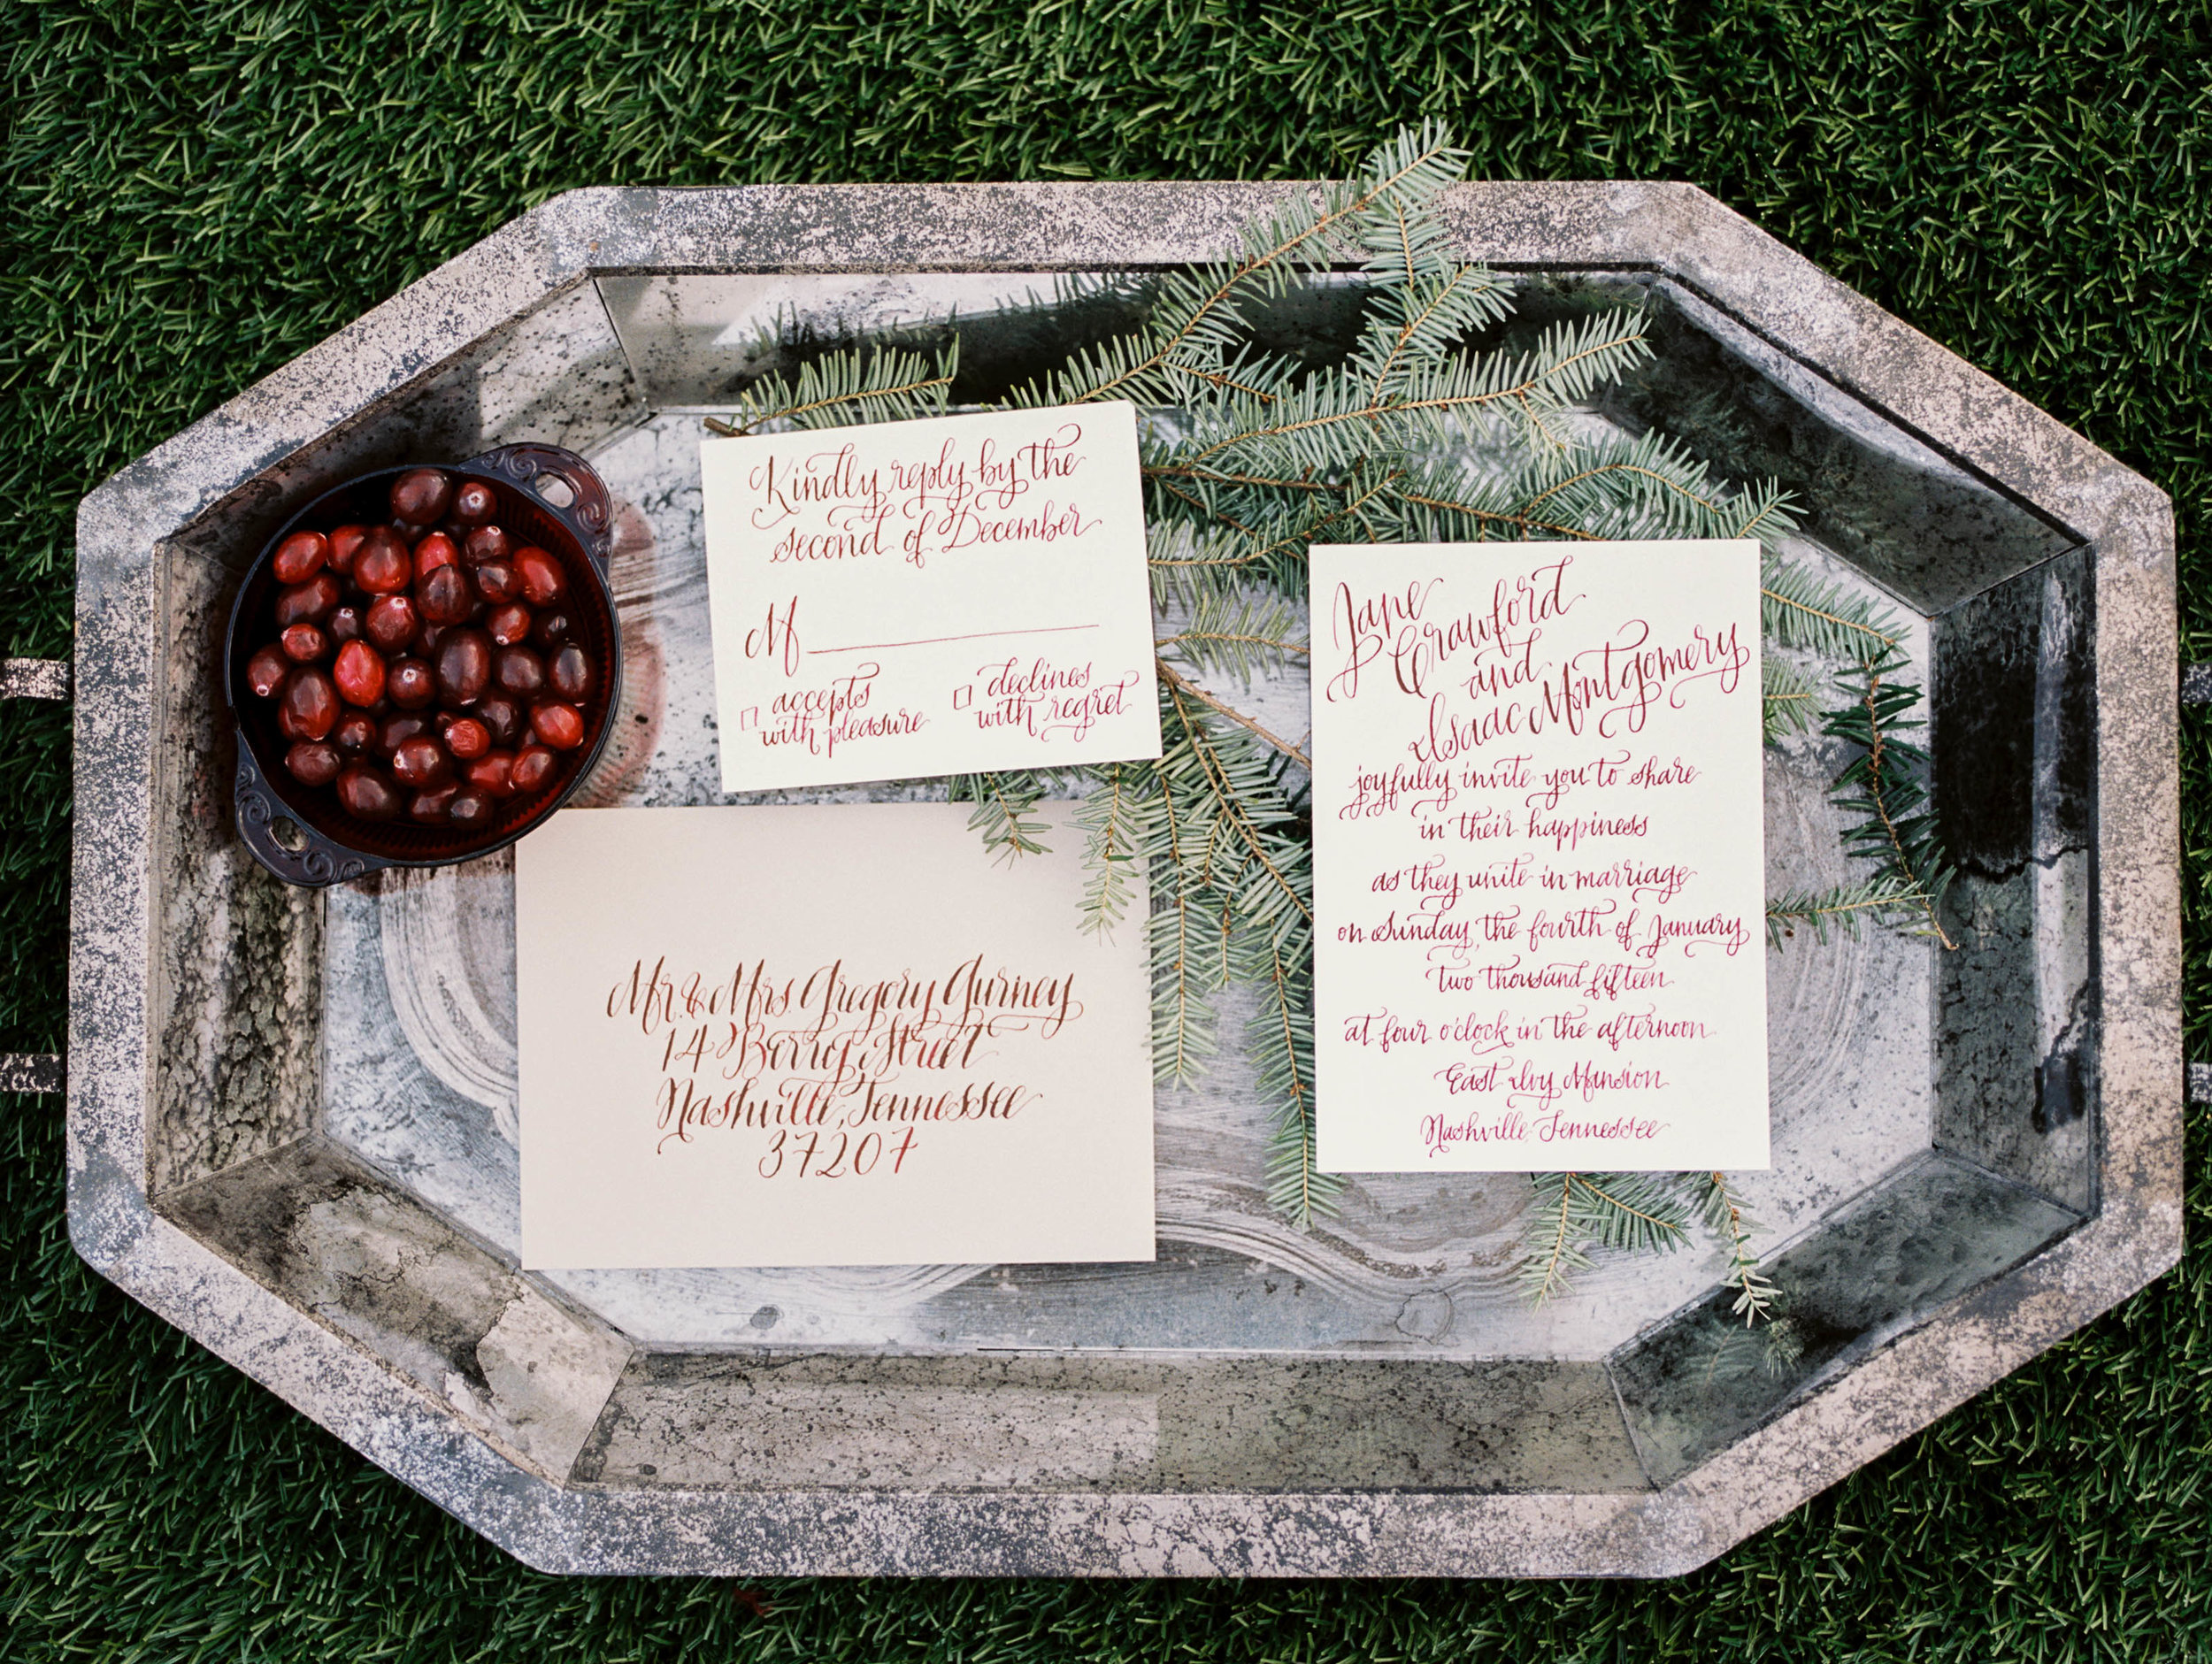 Kindly reply by the
second of December
M
accepts
with pleasure
declines
with regret
Jane
Crawford
and
Isaac Montgomery
joyfully invite you to share
in their happiness
as they unite in marriage
on Sunday, the fourth of January
two thousand fifteen
at four o'clock in the afternoon
East Ivy Mansion
Nashville Tennessee
Mr. & Mrs. Gregory Gurney
14 Berry Street
Nashville, Tennessee
37207